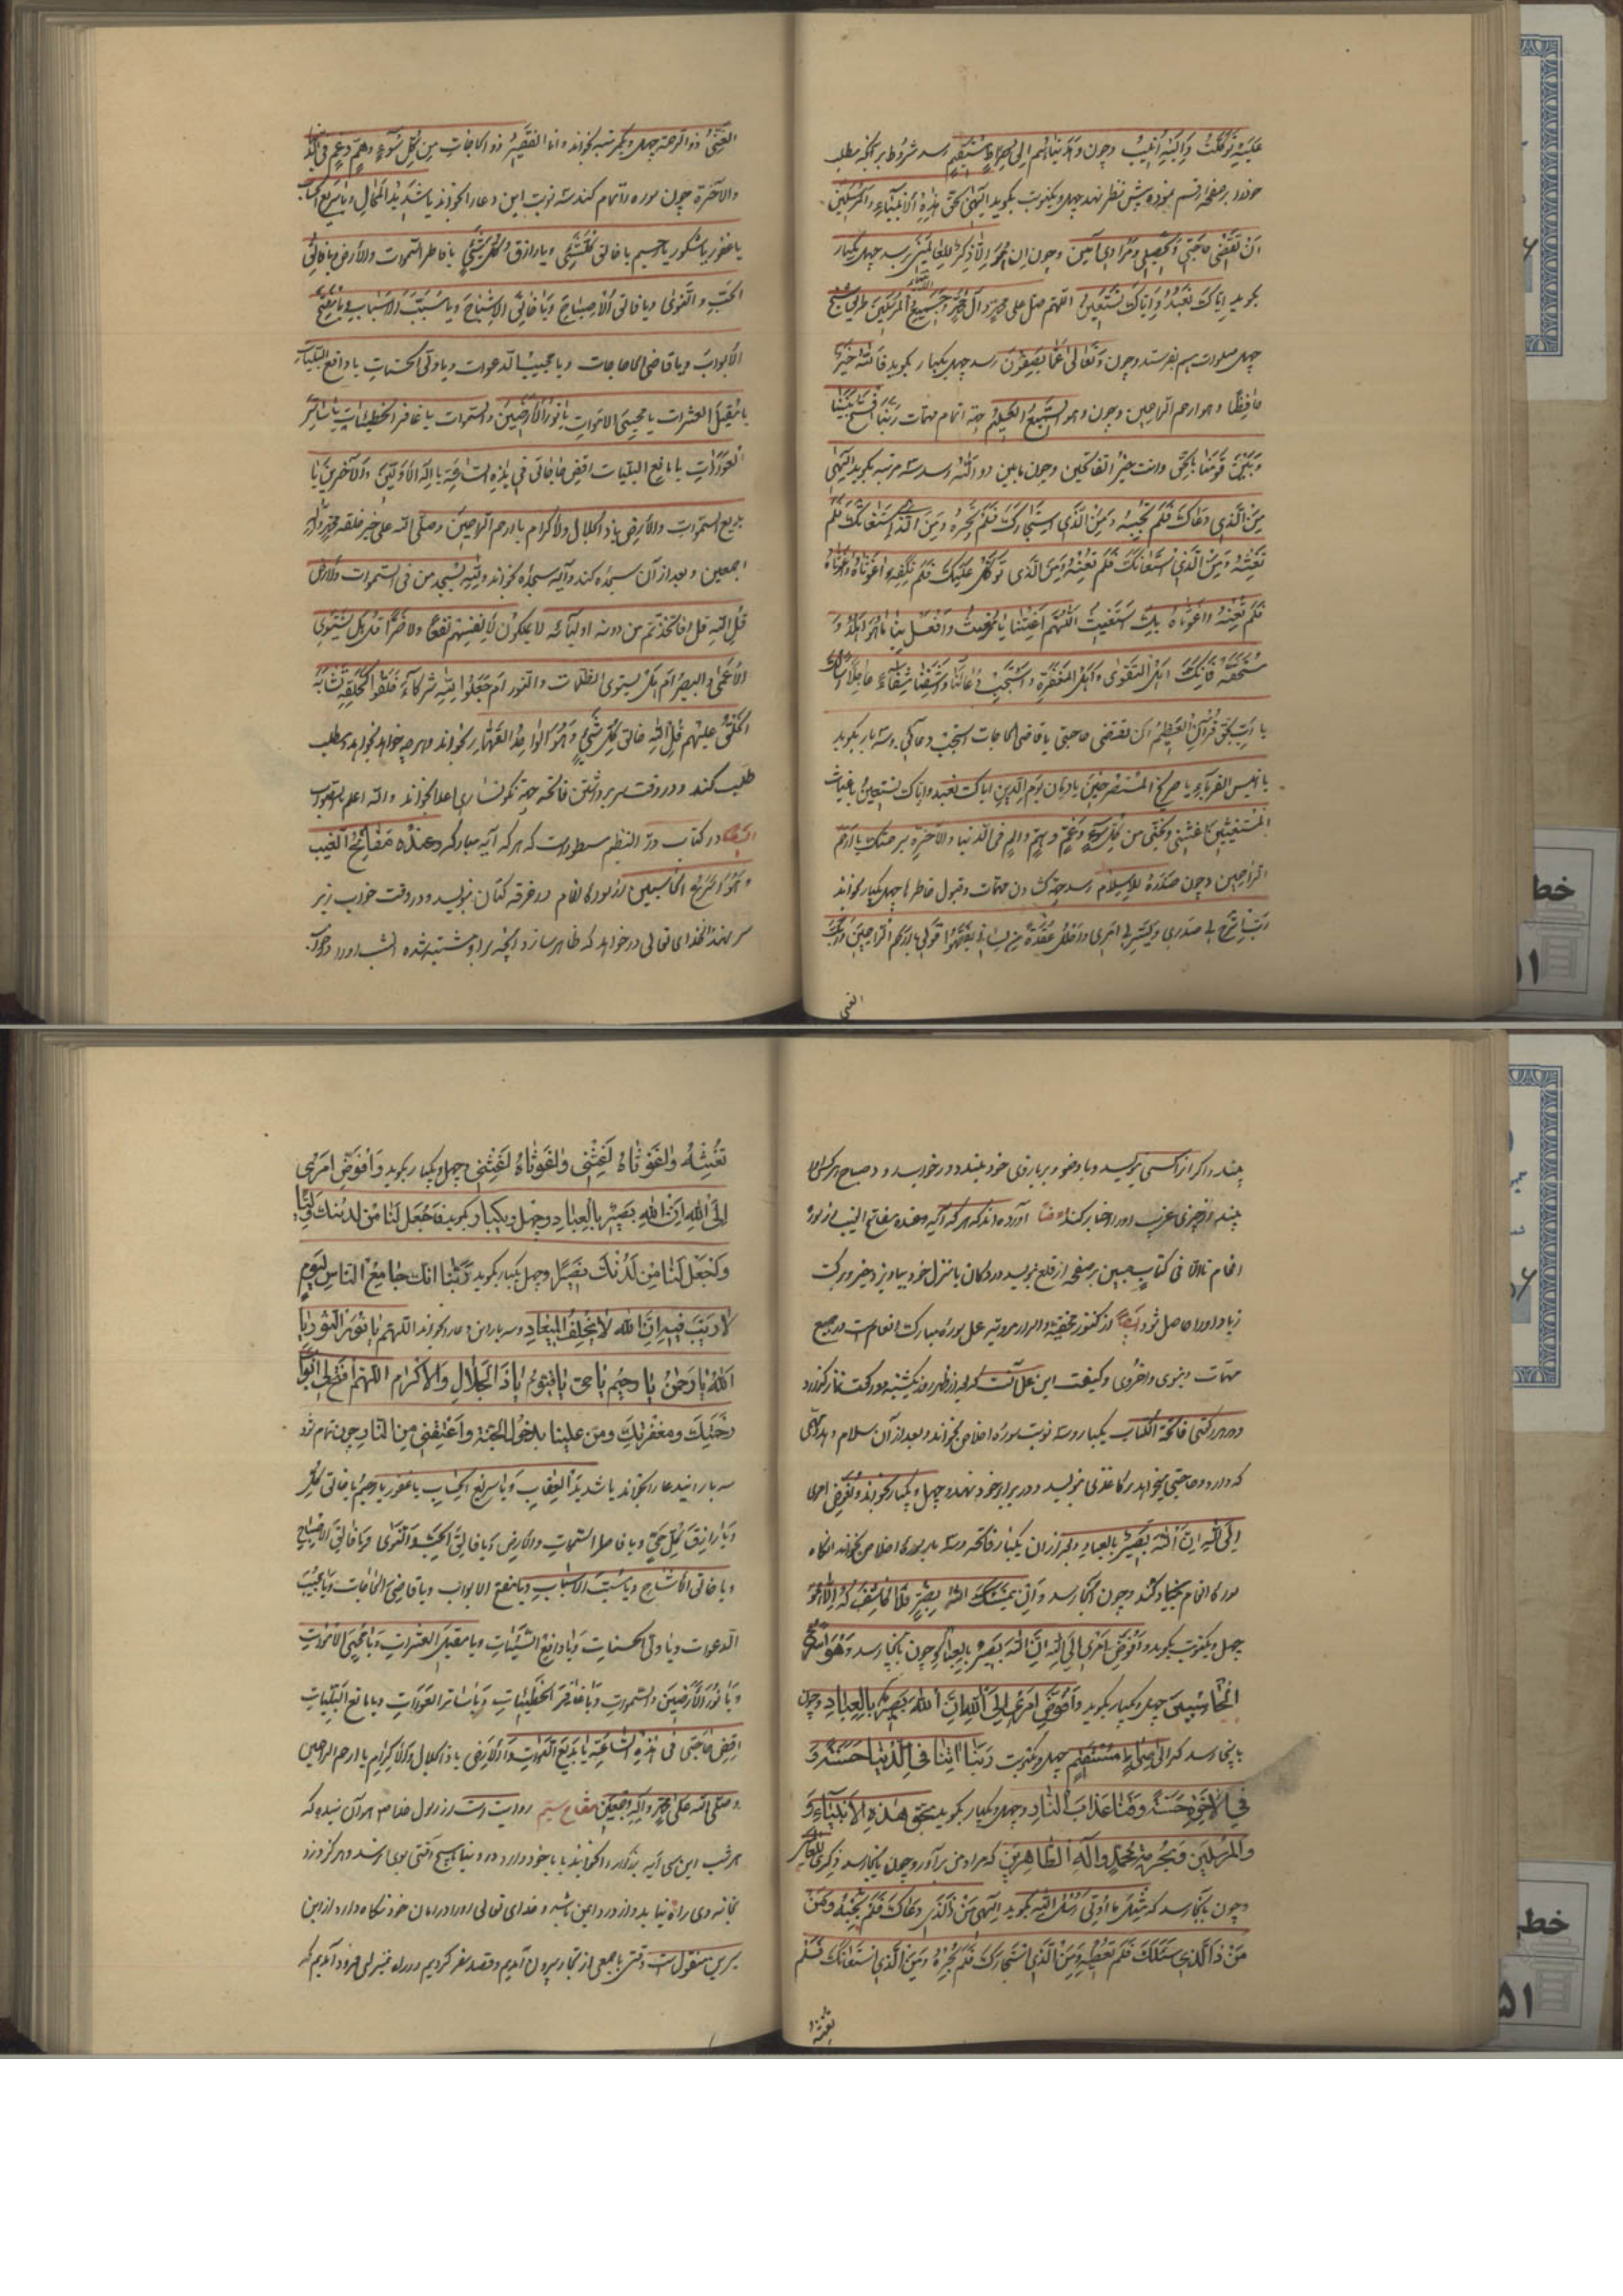 علیه توکلت والیه انیب وچون وهدیناهم الی صراط مستقیم رسد شروط بر آنکه مطلب
خود را بر صفحه رقم نموده پیش نظر نهد چهل و یکنوبت بگوید الهی بحق هذه الانبیاء والمرسلین
ان تقضی حاجتی وتحصیلی ومرادی آمین وچون ان هو الا ذکری للعالمین رسد چهل یکبار
بگوید ایاک نعبد وایاک نستعین اللهم صل علی محمد وآل محمد وجمیع المرسلین
چهل صلوات هم بفرستد وچون وتعالی عما یصفون رسد چهل یکبار بگوید فالله خیر
حافظا وهو ارحم الراحمین وچون وهو السمیع العلیم جهة اتمام مهمات ربنا افتح بیننا
وبین قومنا بالحق وانت خیر الفاتحین وچون مابین دو الله رسد سه مرتبه بگوید الهی
من الذی دعاک فلم تجبه ومن الذی استجارک فلم تجره ومن الذی استغاثک فلم
تغثه ومن الذی استعانک فلم تعنه ومن الذی توکل علیک فلم تکفه واغوثاه واغوثاه
فلم تعینه واغوثاه بک استغیث اللهم اغثنا یا مغیث وافعل بنا ما هو اهله و
مستحقه فانک اهل التقوی واهل المغفرة واستجب دعائنا واشفنا شفاء عاجلا
یا رب بحق قرآن العظیم ان تقضی حاجتی یا قاضی الحاجات استجب دعائی وسه بار بگوید
یا انیس الفقراء یا صریخ المستصرخین یا دیان یوم الدین ایاک نعبد وایاک نستعین یا غیاث
المستغیثین اغثنی ونجنی من کل سوء وغم وهم والم فی الدنیا والآخرة برحمتک یا ارحم
الراحمین وچون صدره للاسلام رسد جهة گشادن مهمات وقبول خاطرها چهل یکبار بخواند
رب اشرح لی صدری ویسر لی امری واحلل عقدة من لسانی یفقهوا قولی یا ارحم الراحمین وربک
الغنی
الغنی ذو الرحمة چهل ویکمرتبه بخواند وانا الفقیر ذو الحاجات من کل سوء وهم وغم فی الدنیا
والآخرة چون سوره را تمام کند سه نوبت این دعا را بخواند یا شدید المحال ویا سریع الحساب
یا غفور یا شکور یا رحیم یا خالق کل شیء ویا رازق کل شیء یا فاطر السموات والارض یا فالق
الحب والنوی ویا فالق الاصباح ویا خالق الاشباح ویا مسبب الاسباب ویا مفتح
الابواب ویا قاضی الحاجات ویا مجیب الدعوات ویا ولی الحسنات یا دافع البلیات
یا مقیل العثرات یا محیی الاموات یا نور الارضین والسموات یا غافر الخطیئات یا ساتر
العورات یا مانع البلیات اقض حاجاتی فی هذه الساعة یا اله الاولین والآخرین یا
بدیع السموات والارض یا ذا الجلال والاکرام یا ارحم الراحمین وصلی الله علی خیر خلقه محمد وآله
اجمعین وبعد از آن سجده کند وآیه سجده بخواند ولله یسجد من فی السموات والارض
قل الله قل افاتخذتم من دونه اولیائه لا یملکون لانفسهم نفعا ولا ضرا قل هل یستوی
الاعمی والبصیر ام هل یستوی الظلمات والنور ام جعلوا لله شرکاء خلقوا کخلقه فتشابه
الخلق علیهم قل الله خالق کل شیء وهو الواحد القهار بخواند وهر چه خواهد بخواهد ومطلب
طلب کند و در وقت سر برداشتن فاتحه جهة نکونساری اعدا بخواند والله اعلم بالصواب
ایضا در کتاب در النظیم مسطور است که هر که آیه مبارکه وعنده مفاتح الغیب
وهو اسرع الحاسبین از سوره انعام در خرقه کتان بنویسد و در وقت خواب زیر
سر نهد از خدای تعالی در خواهد که ظاهر سازد آنچه بر او مشتبه شده
چیند و اگر از کسی بترسد و با وضو بر بازوی خود بندد و در خورسد و صباح هر کس اورا
بیند از چیزی غریب اورا خبر کند ایضا آورده‌اند که هر که آیه وعنده مفاتح الغیب از سوره
انعام تا الا فی کتاب مبین بر صفحه از قلع بنویسد در دکان یا منزل خود بیاویزد خیر و برکت
زیاد اورا حاصل شود ایضا در کنوز مخفیه والد از مرویه عمل سوره مبارکه انعام است در جمیع
مهمات دنیوی و اخروی وکیفیت این عمل آنست که بعد از ظهر روز یکشنبه دو رکعت نماز بگذارد
و در هر رکعتی فاتحة الکتاب یکبار و سه نوبت سوره اخلاص بخواند و بعد از آن سلام دهد
که دارد و حاجتی میخواهد بر کاغذی بنویسد و در برابر خود نهد و چهل و یکبار بخواند وافوض امری
الی الله ان الله بصیر بالعباد و بعد از آن یکبار فاتحه و سه بار سوره اخلاص بخواند آنکاه
سوره انعام بنیاد کند و چون آنجا رسد وان یمسسک الله بضر فلا کاشف له الا هو
چهل و یکنوبت بگوید وافوض امری الی الله ان الله بصیر بالعباد و چون بانجا رسد وهو اسرع
الحاسبین چهل و یکبار بگوید وافوض امری الی الله ان الله بصیر بالعباد و چون
بانجا رسد که الی صراط مستقیم چهل و یکنوبت ربنا آتنا فی الدنیا حسنة و
فی الآخرة حسنة وقنا عذاب النار و چهل و یکبار بگوید بحق هذه الانبیاء و
والمرسلین وبحرمة محمد وآله الطاهرین که مراد من بر آور و چون بانجا رسد ذکری للعالمین
و چون بانجا رسد که مثل ما اوتی رسل الله بگوید الهی من ذا الذی دعاک فلم تجبه ومن
من ذا الذی سئلک فلم تعطه ومن الذی استجارک فلم تجره ومن الذی استغاثک فلم
تغثه
تغثه واغوثاه اغثنی واغوثاه اغثنی چهل و یکبار بگوید وافوض امری
الی الله ان الله بصیر بالعباد و چهل و یکبار بگوید فاجعل لنا من لدنک ولیا
واجعل لنا من لدنک نصیرا و چهل یکبار بگوید ربنا انک جامع الناس لیوم
لا ریب فیه ان الله لا یخلف المیعاد و سه بار این دعا را بخواند اللهم یا نور النور یا
الله یا رحمن یا رحیم یا حی یا قیوم یا ذا الجلال والاکرام اللهم افتح لی ابواب
رحمتک ومغفرتک ومن علینا بدخول الجنة واعتقنی من النار چون تمام شود
سه بار ایندعا را بخواند یا شدید العقاب ویا سریع الحساب یا غفور یا رحیم یا خالق کل
ویا رازق کل حی ویا فاطر السموات والارض ویا فالق الحب والنوی ویا فالق الاصباح
ویا خالق الاشباح ویا مسبب الاسباب ویا مفتح الابواب ویا قاضی الحاجات ویا مجیب
الدعوات ویا ولی الحسنات ویا دافع السیئات ویا مقیل العثرات ویا محیی الاموات
ویا نور الارضین والسموات ویا غافر الخطیئات ویا ساتر العورات ویا مانع البلیات
اقض حاجتی فی هذه الساعة یا بدیع السموات والارض یا ذا الجلال والاکرام یا ارحم الراحمین
وصلی الله علی محمد وآله اجمعین مفتاح سیم روایت است از رسول خدا که
هر شب این سی آیه بخواند یا با خود دارد در دنیا هیچ آفتی بوی نرسد و هرگز دزد
بخانه وی راه نیابد و از درد ایمن باشد و خدای تعالی اورا در امان خود نگاه دارد از ابن
سیرین منقولست وقتی با جمعی از تجار بیرون آمدیم و قصد سفر کردیم در راه منزلی فرود آمدیم که
خط
۵۱